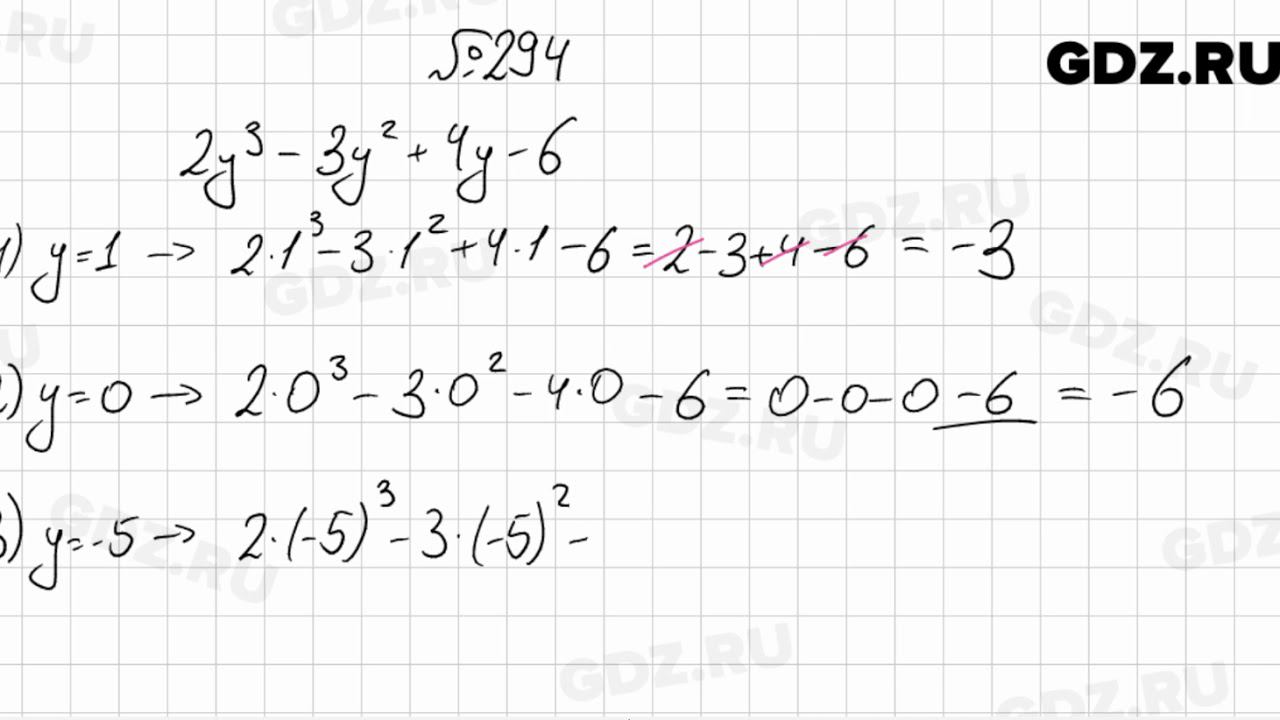 №294
GDZ.RU
2y³ - 3y² + 4y - 6
1) y=1 → 2·1³ - 3·1² + 4·1 - 6 = 2 - 3 + 4 - 6 = -3
2) y=0 → 2·0³ - 3·0² - 4·0 - 6 = 0 - 0 - 0 - 6 = -6
3) y=-5 → 2·(-5)³ - 3·(-5)² -